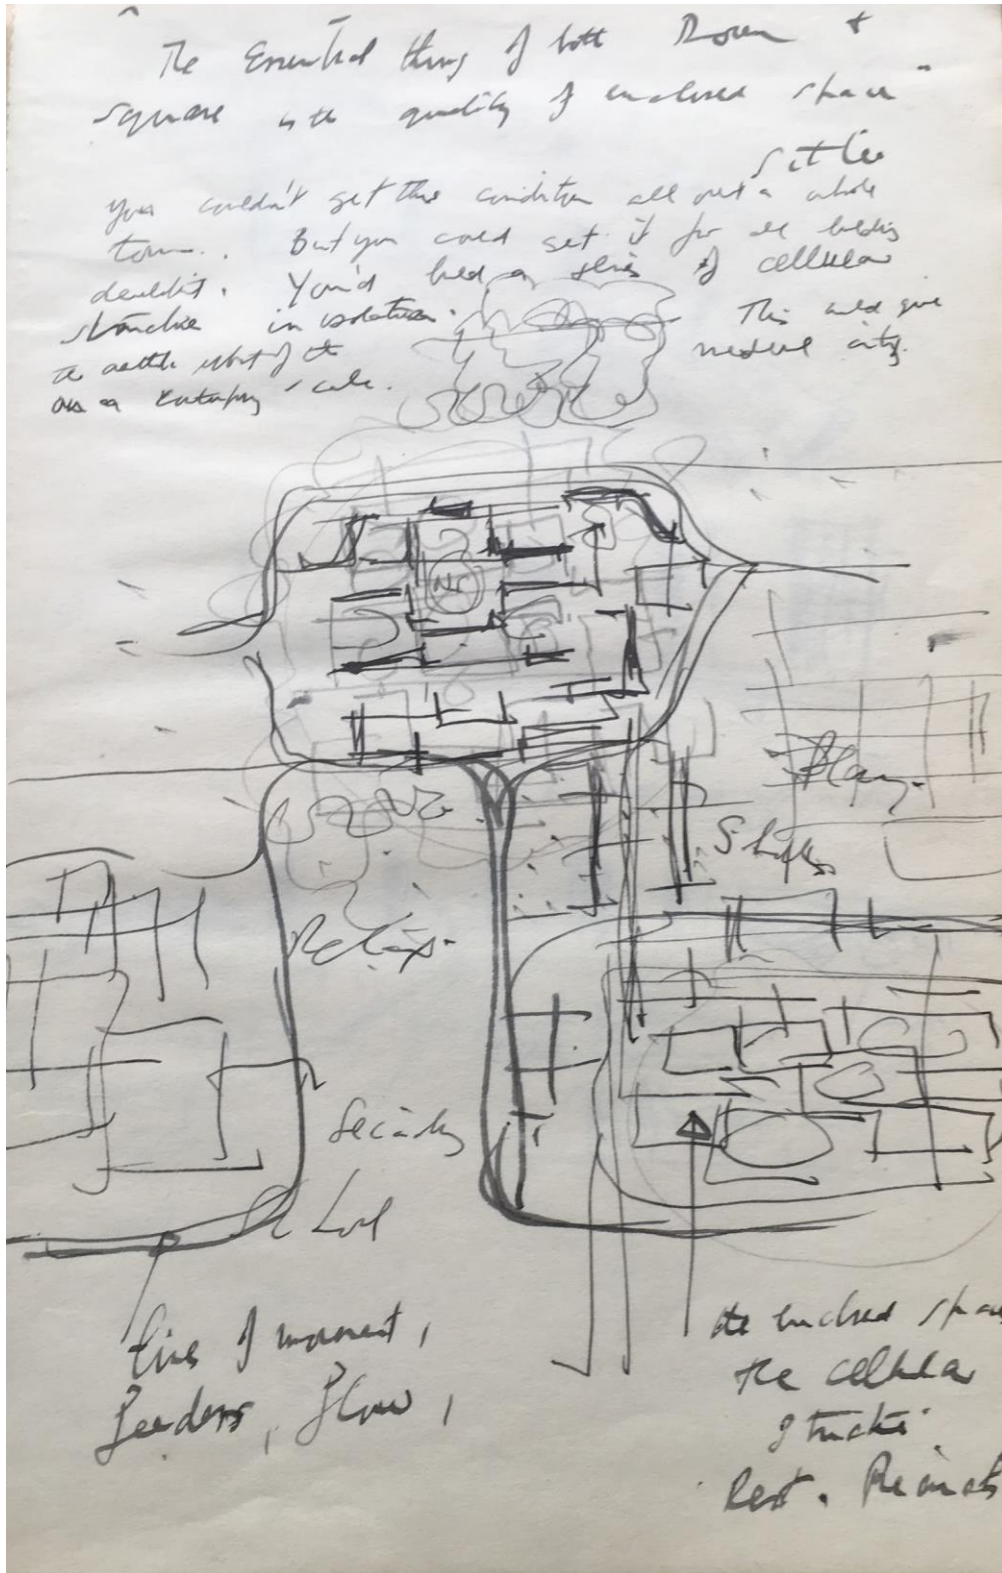 "The Essential thing of both Room &
square is the quality of enclosed space"
Sitte
You couldn't get this condition all over a whole
town. But you could get it for all
You'd build a series of cellular
structure in isolation. This would give
the of the medieval city.
as a scale.
Play.
Shops
Relax.
Security
lines of movement,
feeders, flow,
the enclosed space
the cellular
structure
Rest.